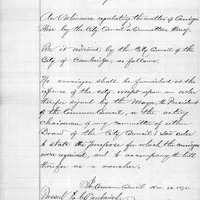 An Ordinance regulating the matter of Carriage
Hire by the City Council or Committees thereof.
Be it ordained by the City Council of the
City of Cambridge, as follows:
No carriage shall be furnished at the
expense of the city, except upon an order
therefor signed by the Mayor, the President
of the Common Council, or the acting
Chairman of any committee of either
Board of the City Council; said order
to state the purpose for which the carriage
were required, and to accompany the bill
therefor as a voucher.
In Common Council